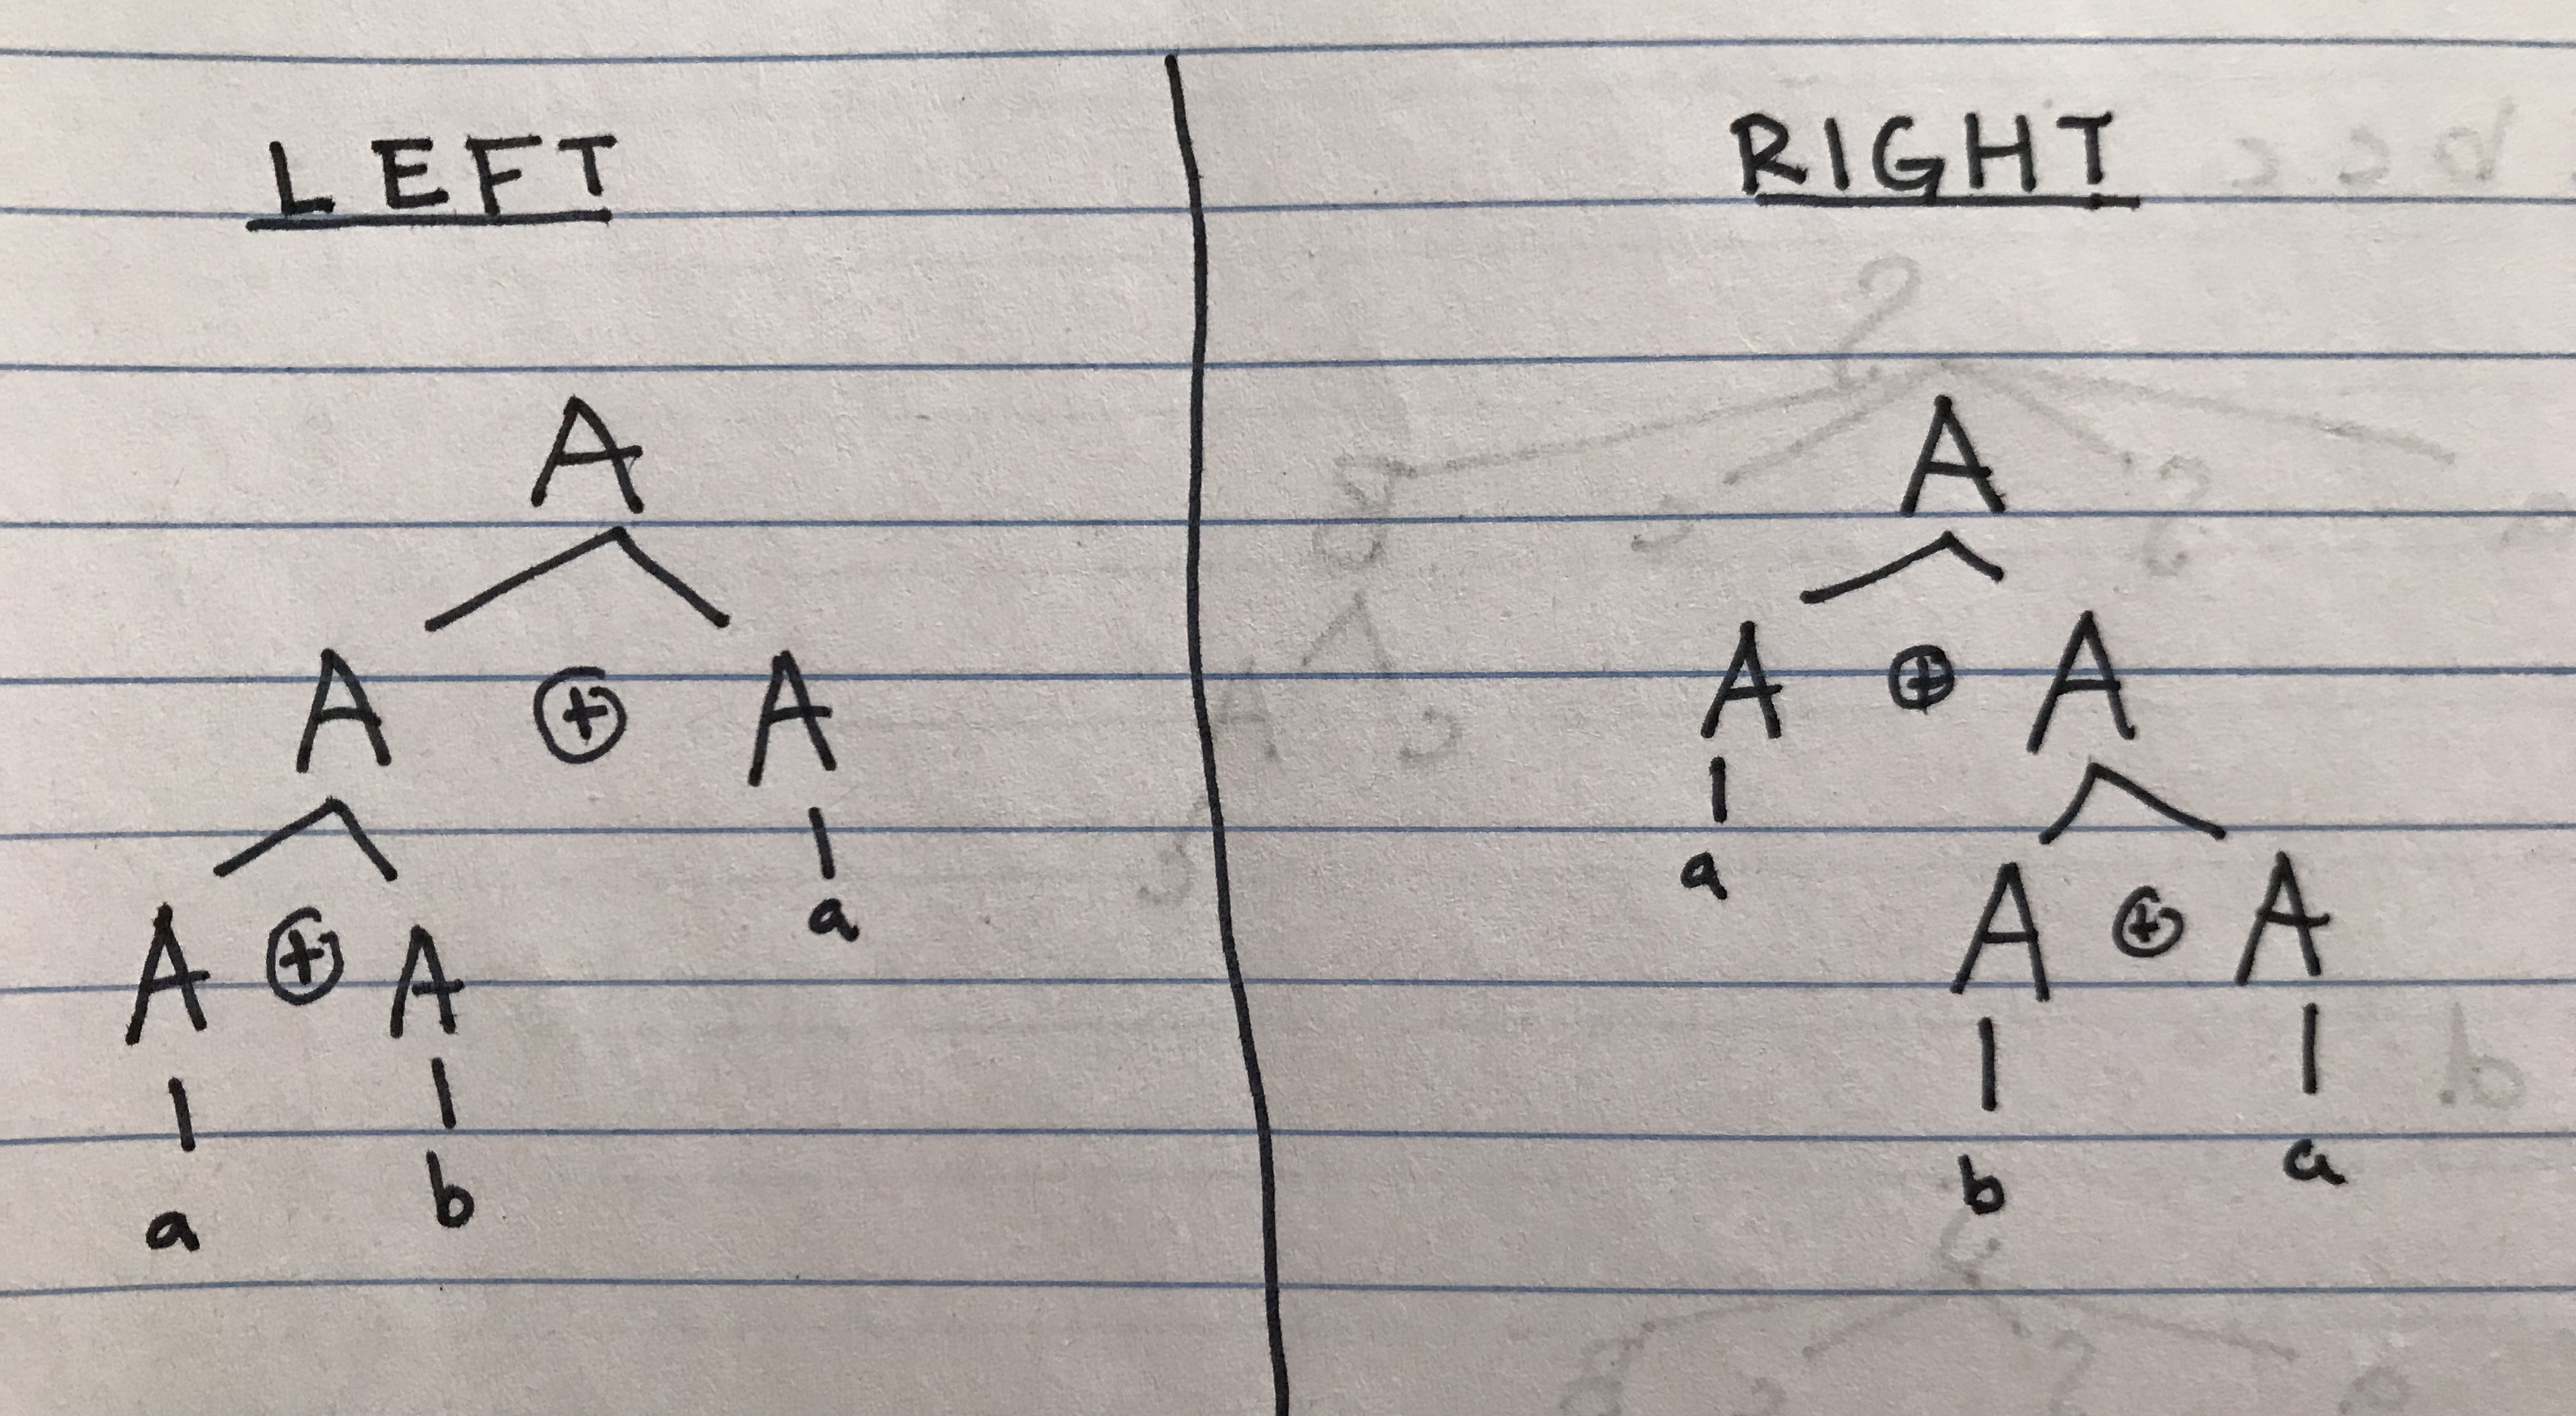 LEFT
A
A ⊕ A
a
A ⊕ A
a b
RIGHT
A
A ⊕ A
a
A ⊕ A
b a